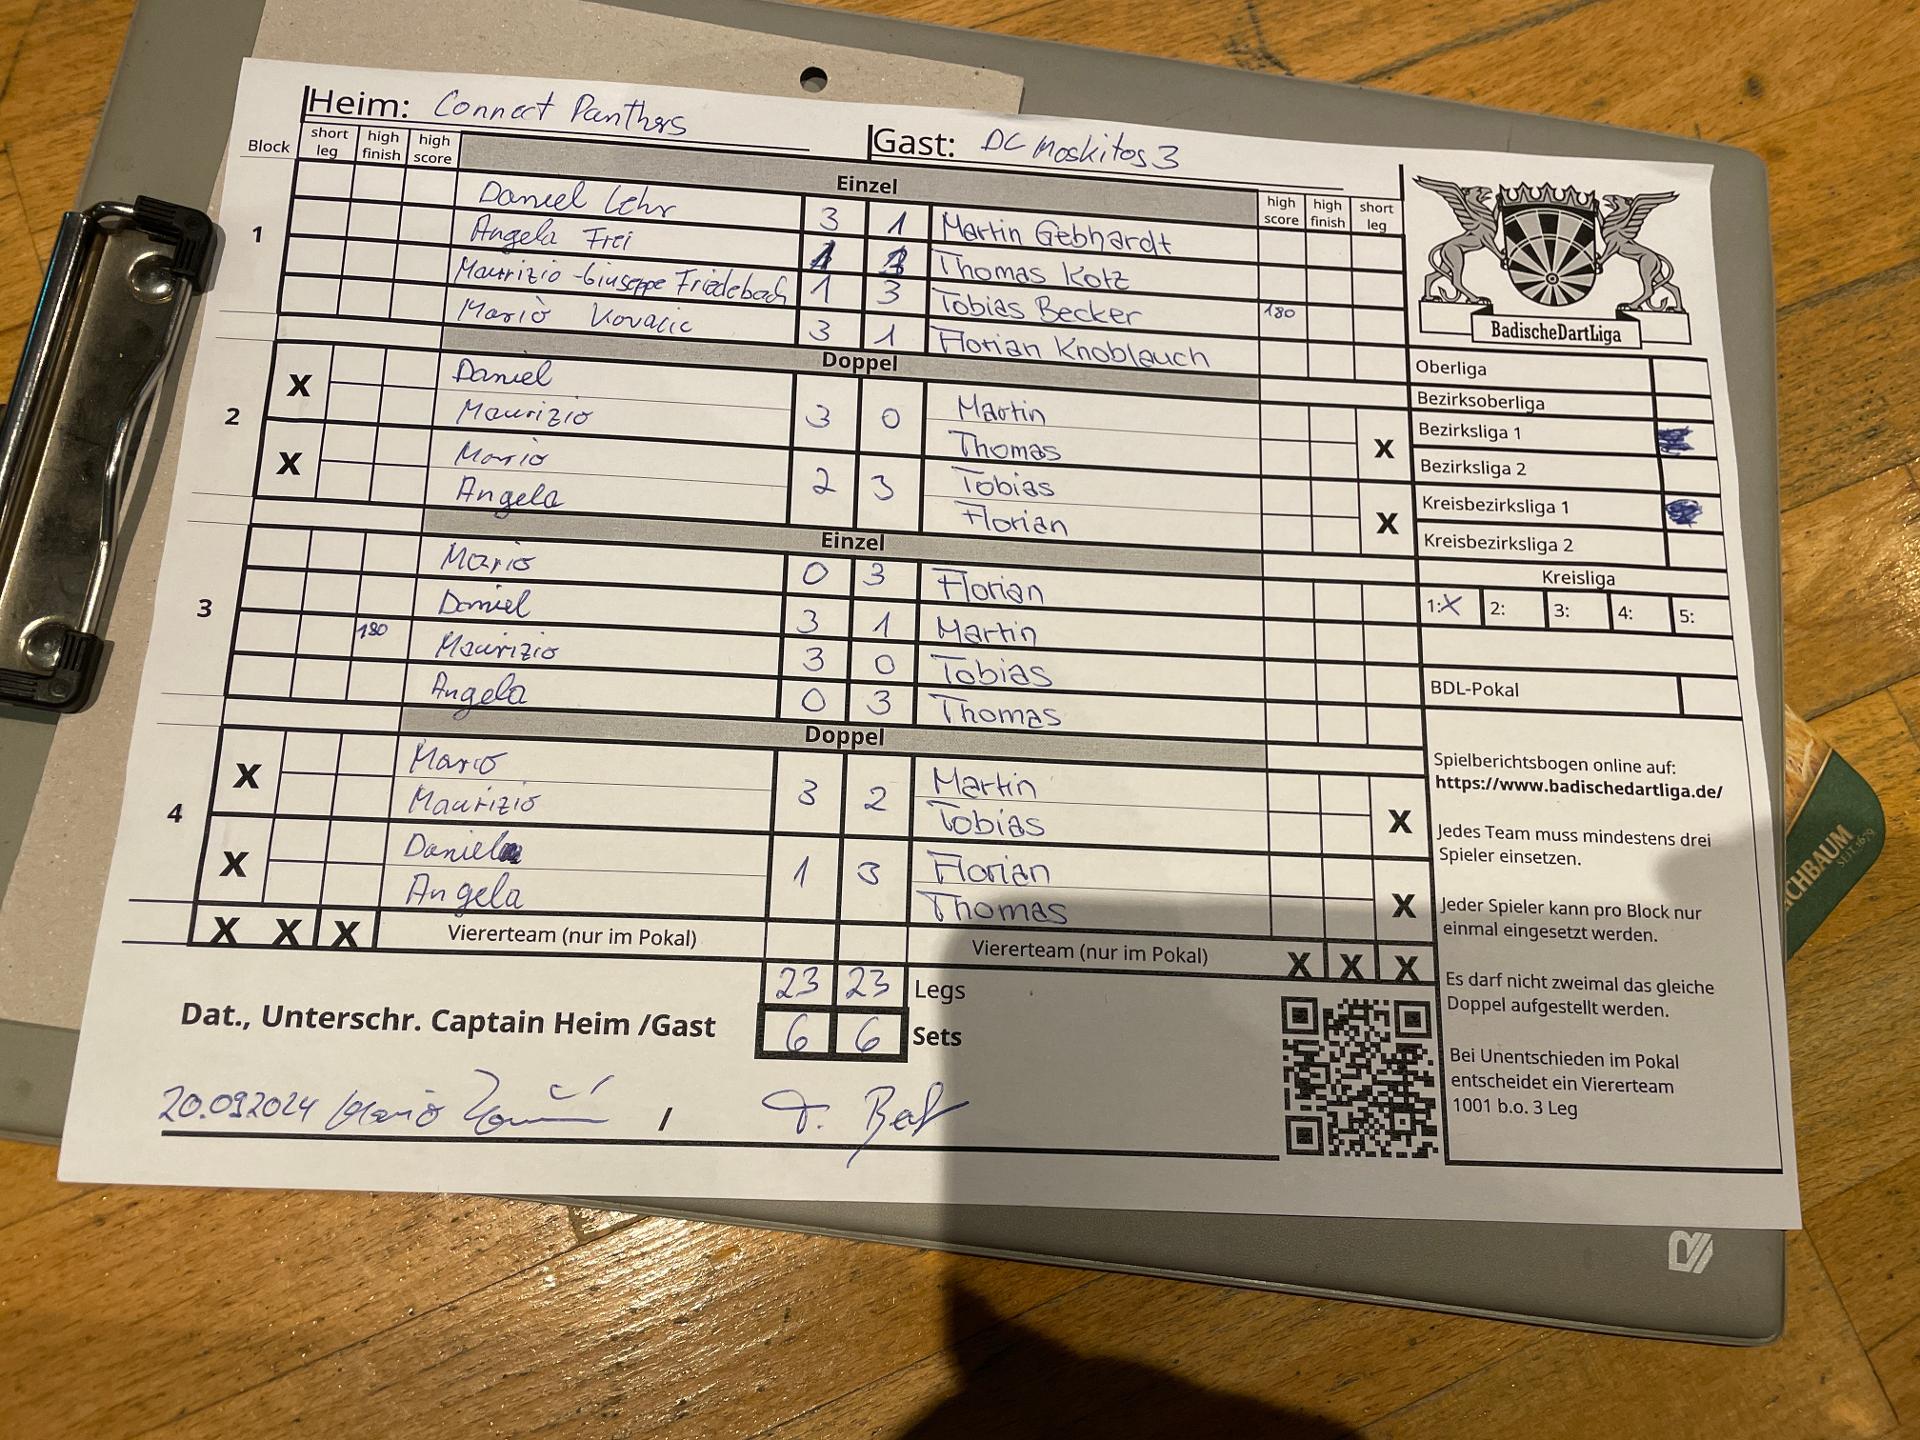 Heim: Connect Panthers Gast: DC Moskitos 3
Block short leg high finish high score Einzel high score high finish short leg
1
Daniel Lehr 3 1 Martin Gebhardt
Angela Frei Thomas Kotz
Maurizio-Giuseppe Friedebach 1 3 Tobias Becker 180
Mario Kovacic 3 1 Florian Knoblauch
Doppel
2
X Daniel 3 0 Martin X
Maurizio Thomas
X Mario 2 3 Tobias X
Angela Florian
Einzel
3
Mario 0 3 Florian
Daniel 3 1 Martin
180 Maurizio 3 0 Tobias
Angela 0 3 Thomas
Doppel
4
X Mario 3 2 Martin X
Maurizio Tobias
X Daniel 1 3 Florian X
Angela Thomas
X X X Viererteam (nur im Pokal) Viererteam (nur im Pokal) X X X
23 23 Legs
Dat., Unterschr. Captain Heim /Gast 6 6 Sets
20.09.2024 Mario / T. 
BadischeDartLiga
Oberliga
Bezirksoberliga
Bezirksliga 1
Bezirksliga 2
Kreisbezirksliga 1
Kreisbezirksliga 2
Kreisliga
1:X 2: 3: 4: 5:
BDL-Pokal
Spielberichtsbogen online auf:
https://www.badischedartliga.de/
Jedes Team muss mindestens drei
Spieler einsetzen.
Jeder Spieler kann pro Block nur
einmal eingesetzt werden.
Es darf nicht zweimal das gleiche
Doppel aufgestellt werden.
Bei Unentschieden im Pokal
entscheidet ein Viererteam
1001 b.o. 3 Leg